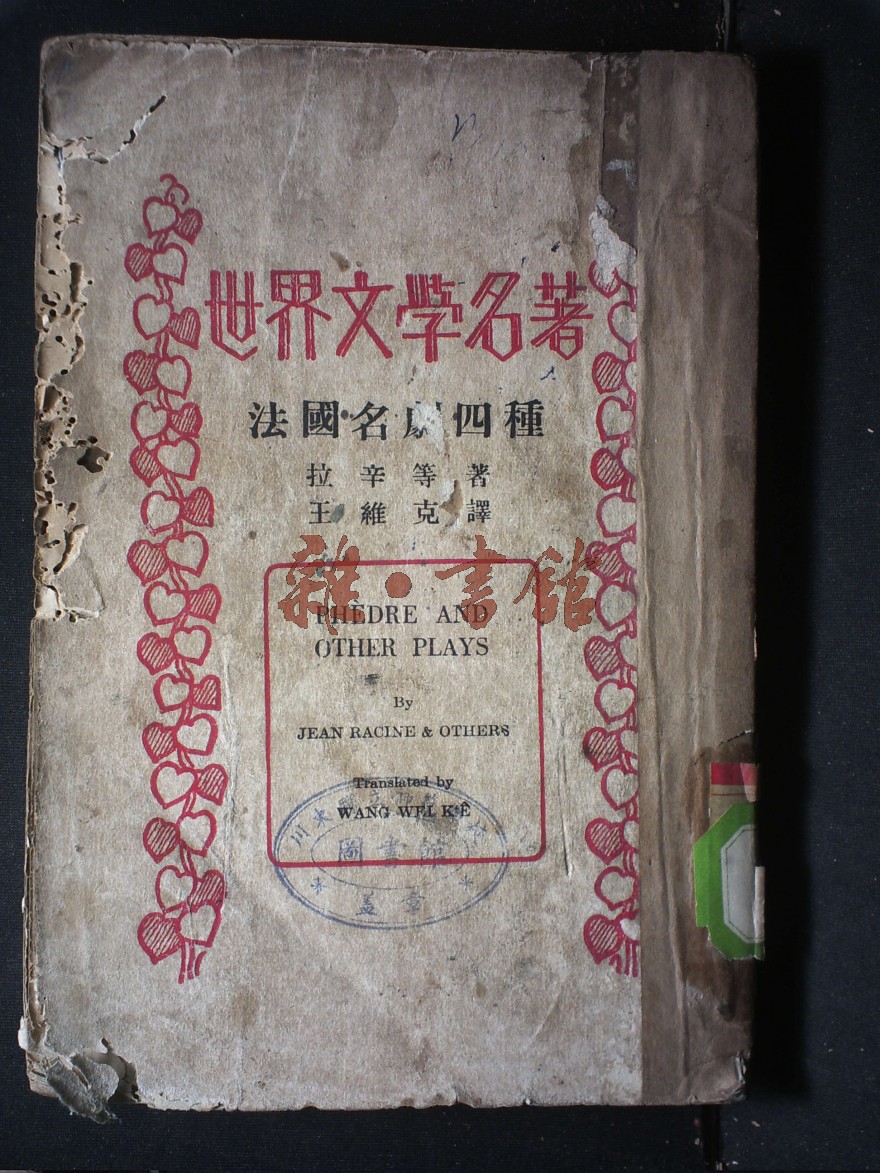 世界文學名著
法國名劇四種
拉辛等著
王維克譯
雜·書館
PHÈDRE AND
OTHER PLAYS
By
JEAN RACINE & OTHERS
Translated by
WANG WEI K'Ê
川東
圖書館
蓋章